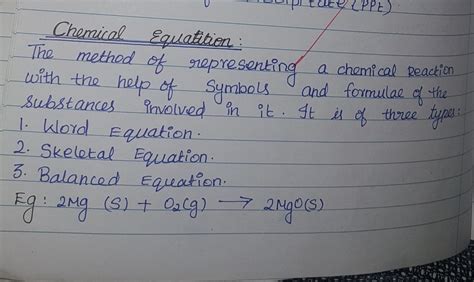 (PPt)
Chemical Equatition:
The method of representing a chemical Reaction
with the help of Symbols and formulae of the
substances involved in it. It is of three types:
1. Word Equation.
2. Skeletal Equation.
3. Balanced Equation.
Eg: 2Mg (S) + O2(g) → 2MgO(S)